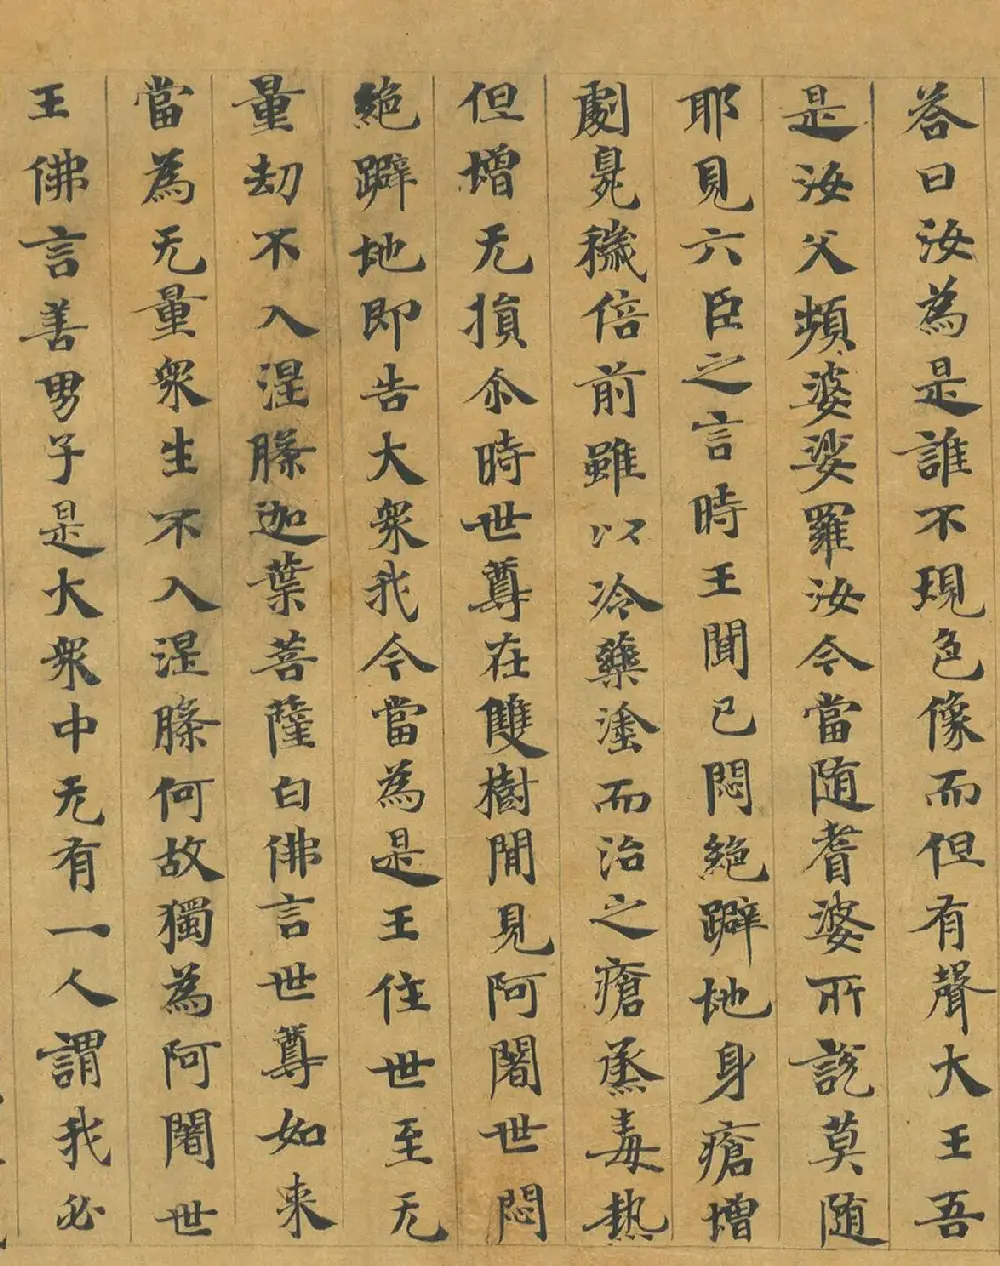 荅曰汝為是誰不現色像而但有聲大王吾
是汝父頻婆娑羅汝今當随耆婆所說莫随
耶見六臣之言時王聞已悶絶躃地身瘡增
劇臰穢倍前雖以冷藥塗而治之瘡蒸毒熱
但增无損尒時世尊在雙樹閒見阿闍世悶
絶躃地即告大衆我今當為是王住世至无
量劫不入涅槃迦葉菩薩白佛言世尊如来
當為无量衆生不入涅槃何故獨為阿闍世
王佛言善男子是大衆中无有一人謂我必